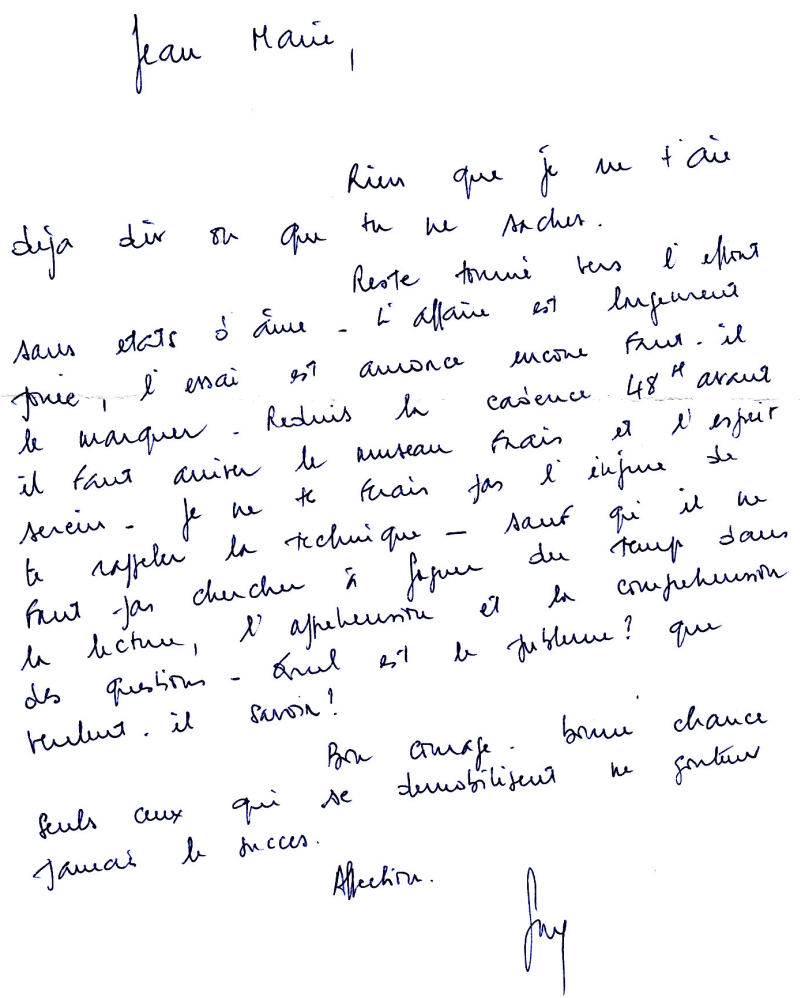 Jean Marie,
Rien que je ne t'aie
déja dit ou que tu ne saches.
Reste tourné vers l'effort
sans etats d'âme - L'affaire est largement
jouée, l'essai est annoncé encore faut-il
le marquer - Reduis la cadence 48H avant
il faut arriver le museau frais et l'esprit
serein - Je ne te ferais pas l'injure de
te rappeler la technique - sauf qu'il ne
faut pas chercher à gagner du temps dans
la lecture, l'apprehension et la comprehension
des questions - Quel est le probleme? que
veulent-il savoir?
Bon courage. bonne chance
Seuls ceux qui se demobilisent ne goutent
Jamais le succes.
Affection.
Guy